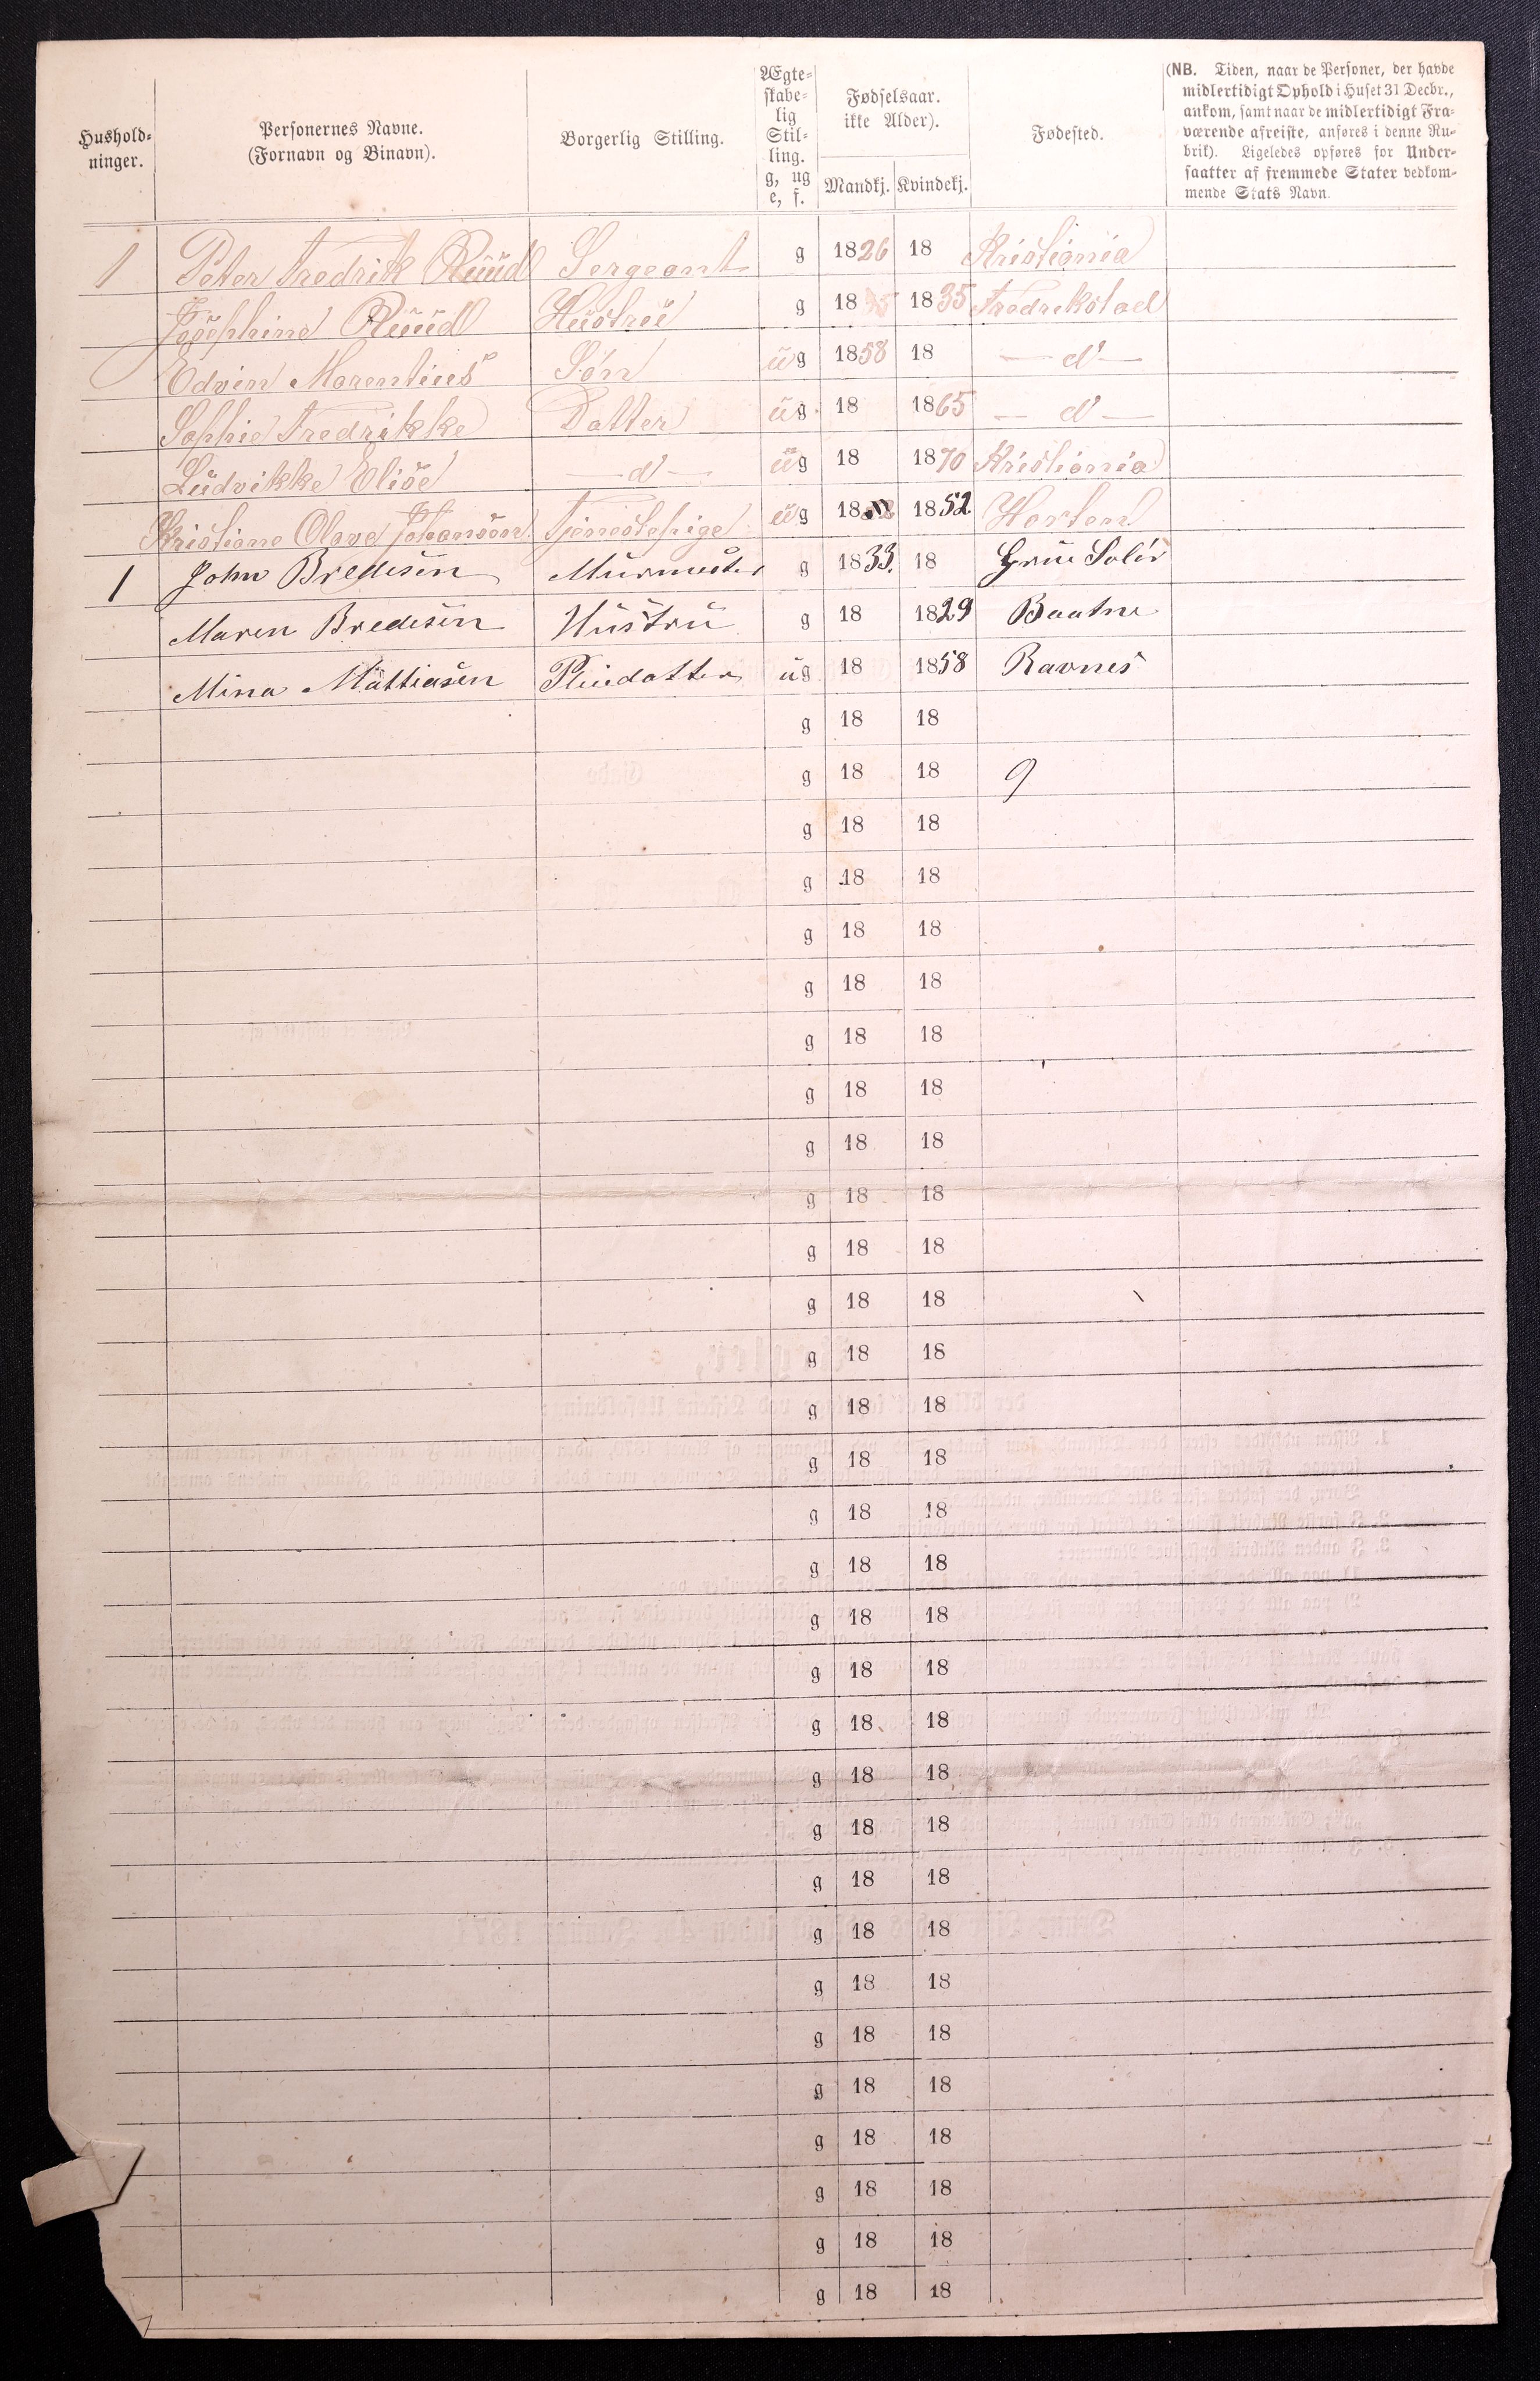 Hushold-
ninger.
Personernes Navne.
(Fornavn og Binavn).
Borgerlig Stilling.
Ægte-
skabe-
lig
Stil-
ling.
g, ug
e, f.
Fødselsaar.
ikke Alder).
Mandkj. Kvindekj.
Fødested.
(NB. Tiden, naar de Personer, der havde
midlertidigt Ophold i Huset 31 Decbr.,
ankom, samt naar de midlertidigt Fra-
værende afreiste, anføres i denne Ru-
brik). Ligeledes opføres for Under-
saatter af fremmede Stater vedkom-
mende Stats Navn.
1 Peter Fredrik Ruud Sergeant g 1826 18 Kristiania
Josephine Ruud Hustru g 18 1835 Fredrekstad
Edvin Marentius Søn ug 1858 18 — d° —
Sophie Fredrikke Datter ug 18 1865 — d° —
Ludvikke Elise — d° — ug 18 1870 Kristiania
Kristiane Olave Johanson Tjenestepige ug 18 1852 Horten
1 John Bredesen Murmester g 1833. 18 Grue Solør
Maren Bredesen Hustru g 18 1829 Baatne
Mina Mattiasen Pleiedatter ug 18 1858 Ravnes
g 18 18
g 18 18 9
g 18 18
g 18 18
g 18 18
g 18 18
g 18 18
g 18 18
g 18 18
g 18 18
g 18 18
g 18 18
g 18 18
g 18 18
g 18 18
g 18 18
g 18 18
g 18 18
g 18 18
g 18 18
g 18 18
g 18 18
g 18 18
g 18 18
g 18 18
g 18 18
g 18 18
g 18 18
g 18 18
g 18 18
g 18 18